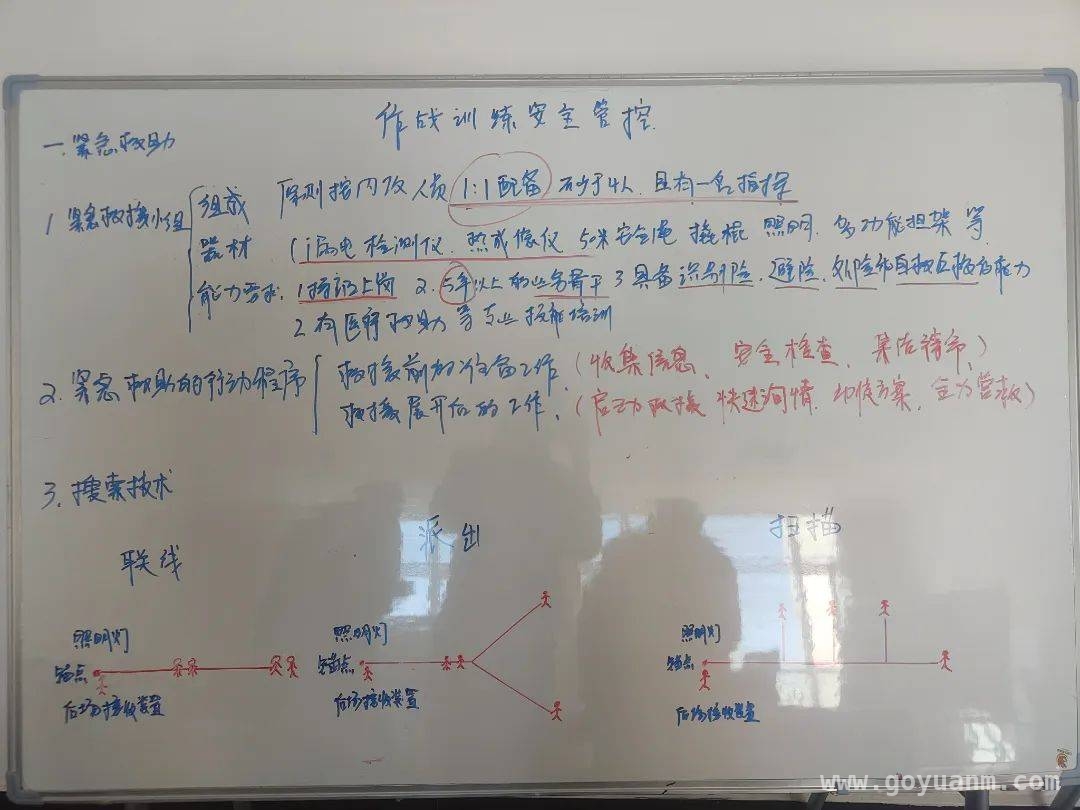 作战训练安全管控
一.紧急救助
1 紧急救援小组
组成 原则按内攻人员 1:1配备 不少于4人 且有一名指挥
器材 漏电检测仪. 热成像仪 50米安全绳 撬棍 照明. 多功能担架 等
能力要求. 1持证上岗 2. 5年以上的业务骨干 3 具备识别险. 避险. 处险和自救互救的能力
2 有医疗救助 等专业技能培训
2. 紧急救助的行动程序
救援前的准备工作. (收集信息、安全检查、集结待命、)
救援展开后的工作. (启动救援 快速询情. 方案. 全力营救)
3. 搜索技术
联线 派出 扫描
照明灯 照明灯 照明灯
锚点 锚点 锚点
后场接收装置 后场接收装置 后场接收装置
www.goyuanm.com